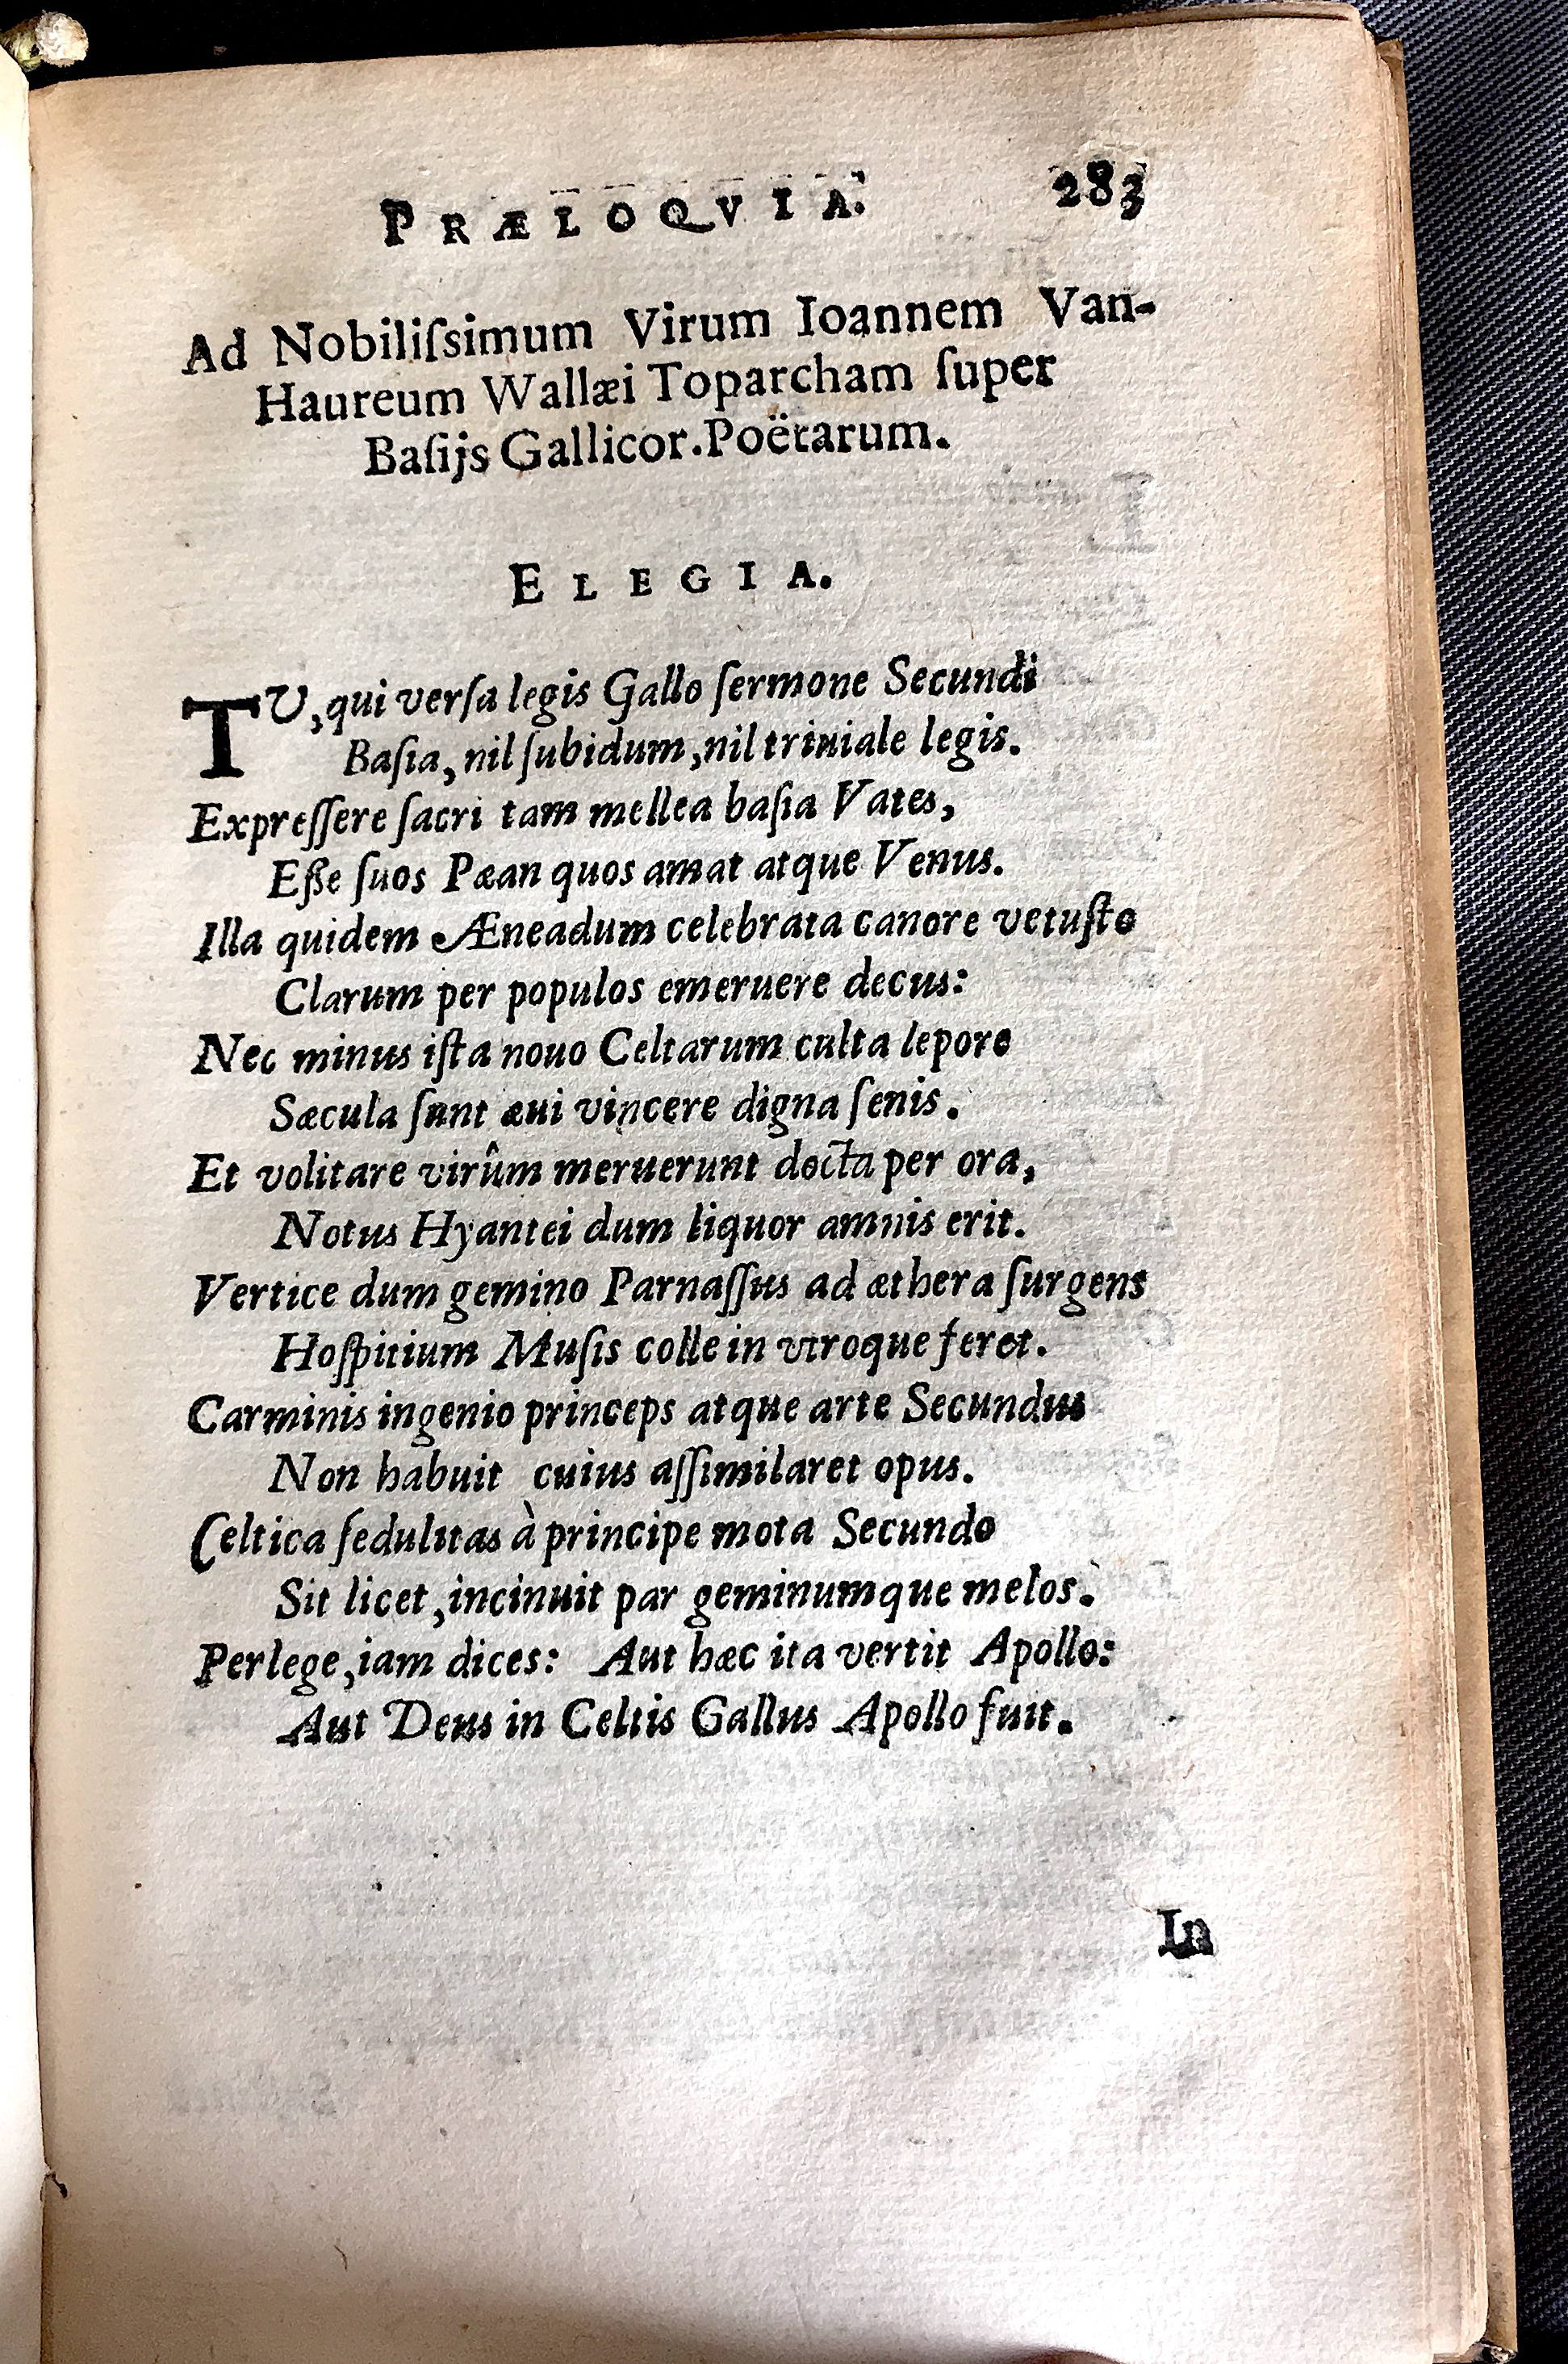 PRÆLOQVIA. 283
Ad Nobiliſsimum Virum Ioannem Van-
Haureum Wallæi Toparcham ſuper
Baſijs Gallicor. Poëtarum.
ELEGIA.
TU, qui verſa legis Gallo ſermone Secundi
Baſia, nil ſubidum, nil triuiale legis.
Expreſſere ſacri tam mellea baſia Vates,
Eße ſuos Pæan quos amat atque Venus.
Illa quidem Æneadum celebrata canore vetuſto
Clarum per populos emeruere decus:
Nec minus iſta nouo Celtarum culta lepore
Sæcula ſunt æui vincere digna ſenis.
Et volitare virûm meruerunt docta per ora,
Notus Hyantei dum liquor amnis erit.
Vertice dum gemino Parnaſſus ad æthera ſurgens
Hoſpitium Muſis colle in vtroque feret.
Carminis ingenio princeps atque arte Secundus
Non habuit cuius aſſimilaret opus.
Celtica ſedulitas à principe mota Secundo
Sit licet, incinuit par geminumque melos.
Perlege, iam dices: Aut hæc ita vertit Apollo:
Aut Deus in Celtis Gallus Apollo fuit.
In